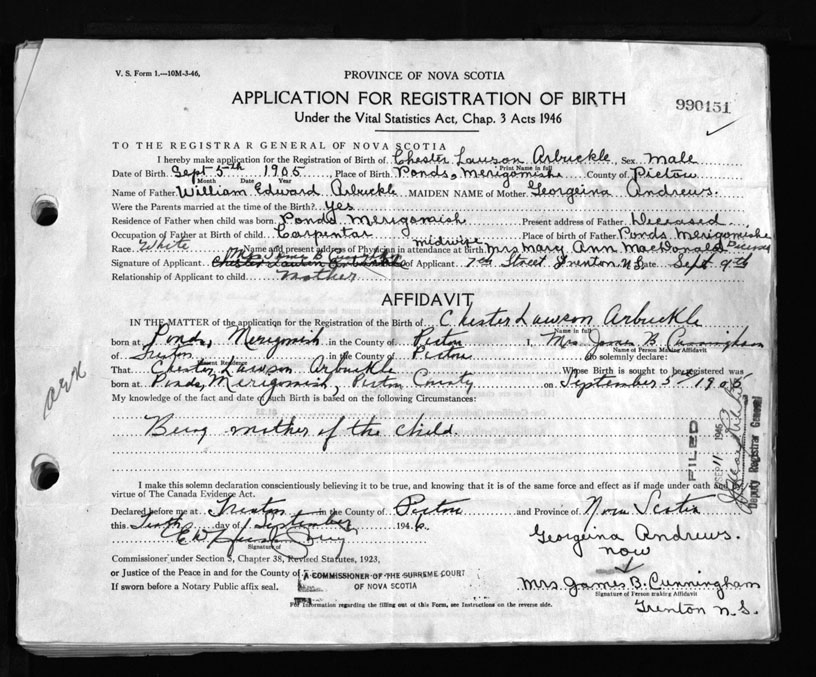 V. S. Form 1.—10M-3-46,
PROVINCE OF NOVA SCOTIA
APPLICATION FOR REGISTRATION OF BIRTH
990151
Under the Vital Statistics Act, Chap. 3 Acts 1946
TO THE REGISTRAR GENERAL OF NOVA SCOTIA
I hereby make application for the Registration of Birth of Chester Lawson Arbuckle, Sex male
Print Name in full
Date of Birth Sept 5th 1905, Place of Birth Ponds, Merigomishe County of Pictou
Month Date Year
Name of Father William Edward Arbuckle MAIDEN NAME of Mother Georgeina Andrews.
Were the Parents married at the time of the Birth? Yes
Residence of Father when child was born Ponds Merigomish Present address of Father Deceased
Occupation of Father at Birth of child Carpintar Place of Birth of Father Ponds Merigomishe
Race White Name and present address of Physician in attendance at Birth midwife Mrs Mary Ann MacDonald Deceased
Signature of Applicant Mrs James B Cunningham of Applicant 7th Street Trenton N.S. Date Sept 9th
Relationship of Applicant to child Mother
AFFIDAVIT
IN THE MATTER of the application for the Registration of the Birth of Chester Lawson Arbuckle
Name in full
born at Ponds, Merigomish in the County of Pictou I, Mrs James B. Cunningham
Name of Person Making Affidavit
of Trenton in the County of Pictou do solemnly declare:
Present Residence
That Chester Lawson Arbuckle Whose Birth is sought to be registered was
born at Ponds, Merigomish, Pictou County on September 5 / 1905
My knowledge of the fact and date of such Birth is based on the following Circumstances:
Being mother of the child.
FILED
SEP 11 1946
Deputy Registrar General
I make this solemn declaration conscientiously believing it to be true, and knowing that it is of the same force and effect as if made under oath and by
virtue of The Canada Evidence Act.
Declared before me at Trenton in the County of Pictou and Province of Nova Scotia
this Tenth day of September 1946.
Georgeina Andrews.
now
Signature of
Commissioner under Section 5, Chapter 38, Revised Statutes, 1923,
or Justice of the Peace in and for the County of
A COMMISSIONER OF THE SUPREME COURT
OF NOVA SCOTIA
Mrs James B. Cunningham
Signature of Person making Affidavit
If sworn before a Notary Public affix seal.
Trenton N.S.
For Information regarding the filling out of this Form, see Instructions on the reverse side.